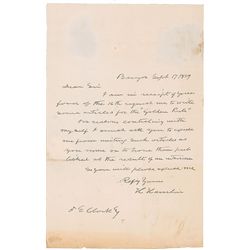 Bangor Sept 17 1879
Dear Sir:
I am in receipt of your
favor of the 16th request me to write
some articles for the "Golden Rule"
For reasons controling with
myself I must ask you to excuse
me from writing such articles as
you name or to have them pub
lished as the results of an interview
So you will please excuse me
Resp Yours
H. Hamlin